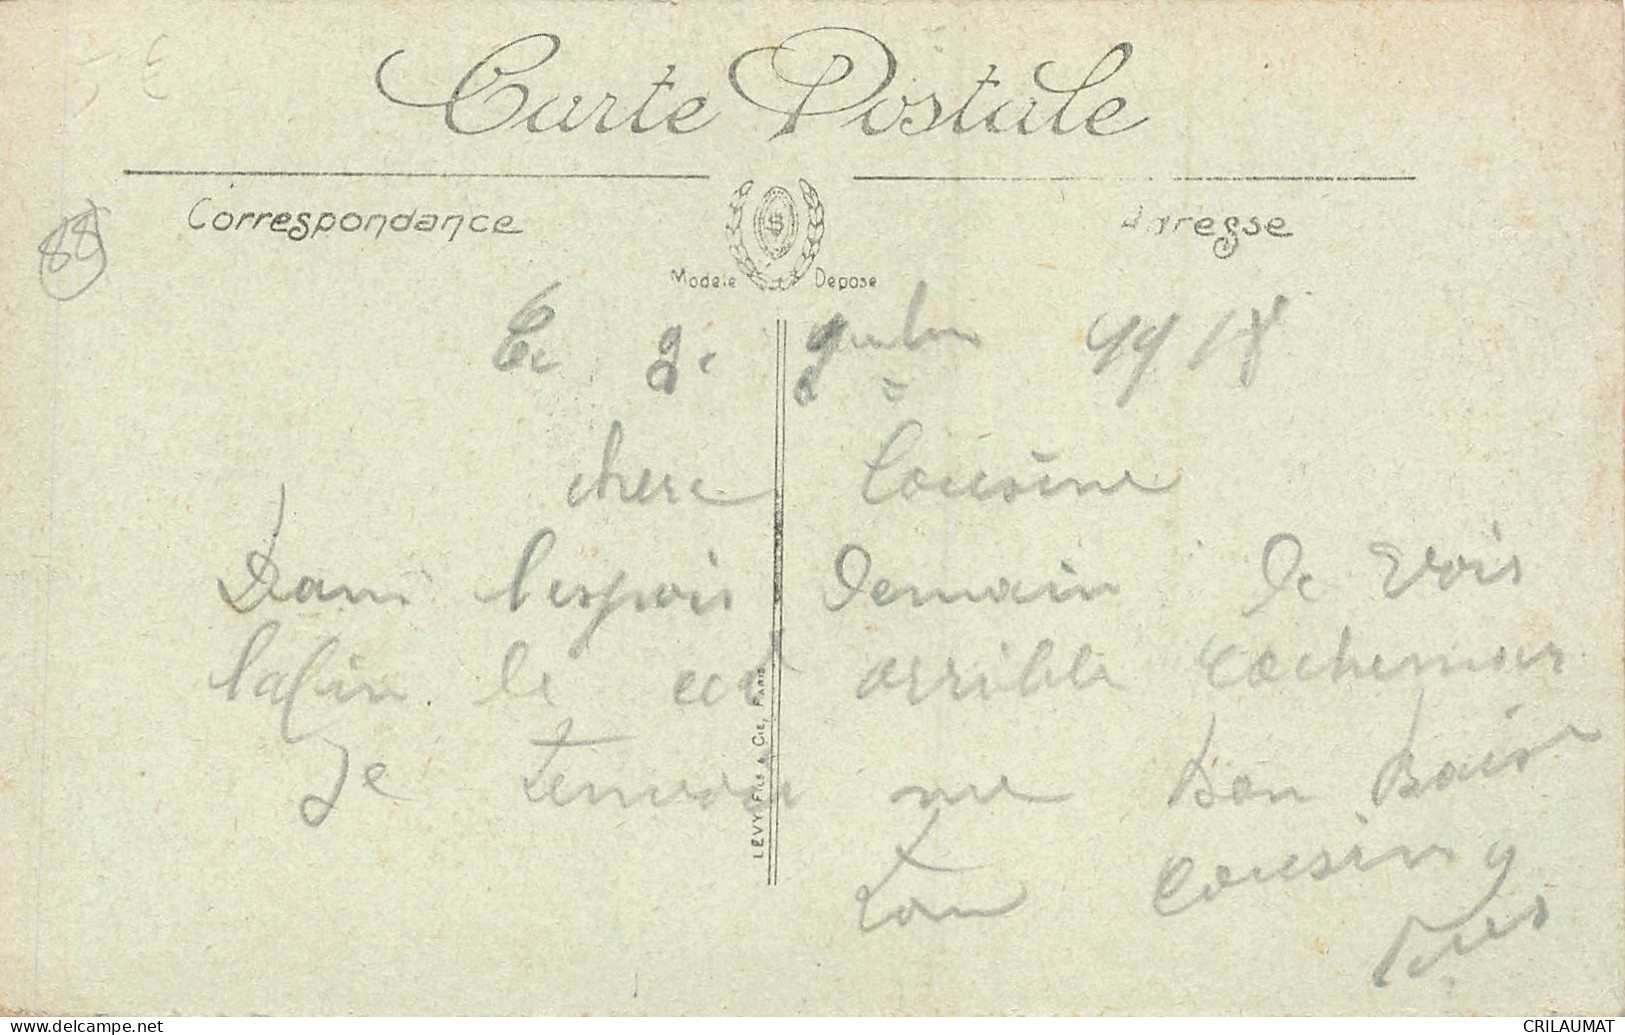 5 €
Carte Postale
Correspondance
Adresse
88
Modele Depose
Le 2e 1918
chere Cousine
Dans lespoir Demain De vois
lafin de cet orrible cochemar
Je tenvoi un bon Baise
ton cousin
LEVY FILS & CIE, PARIS
www.delcampe.net
CRILAUMAT